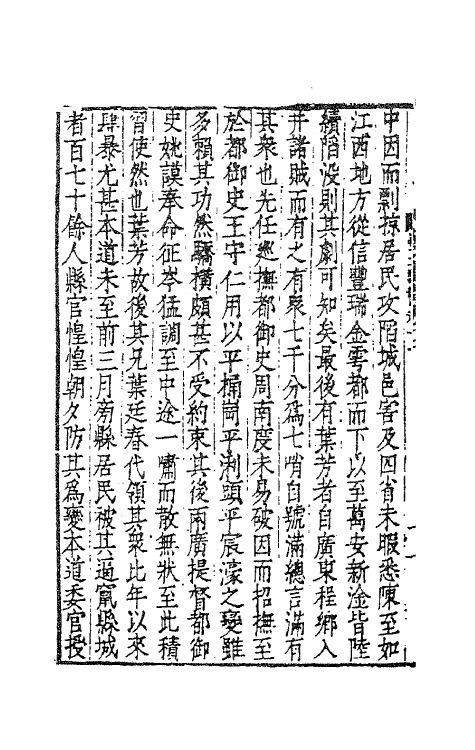 中因而剽掠居民攻陷城邑害及四省未暇悉陳至如
江西地方從信豐瑞金雩都而下以至萬安新淦皆陸
續陷没則其劇可知矣最後有葉芳者自廣東程鄉入
并諸賊而有之有衆七千分爲七哨自號滿總言滿有
其衆也先任巡撫都御史周南度未易破因而招撫至
於都御史王守仁用以平桶岡平浰頭平宸濠之變雖
多賴其功然驕横頗甚不受約束其後兩廣提督都御
史姚謨奉命征岑猛調至中途一嘯而散無狀至此積
習使然也葉芳故後其兄葉廷春代領其衆比年以來
肆暴尤甚本道未至前三月旁縣居民被其逼竄縣城
者百七十餘人縣官惶惶朝夕防其為變本道委官授